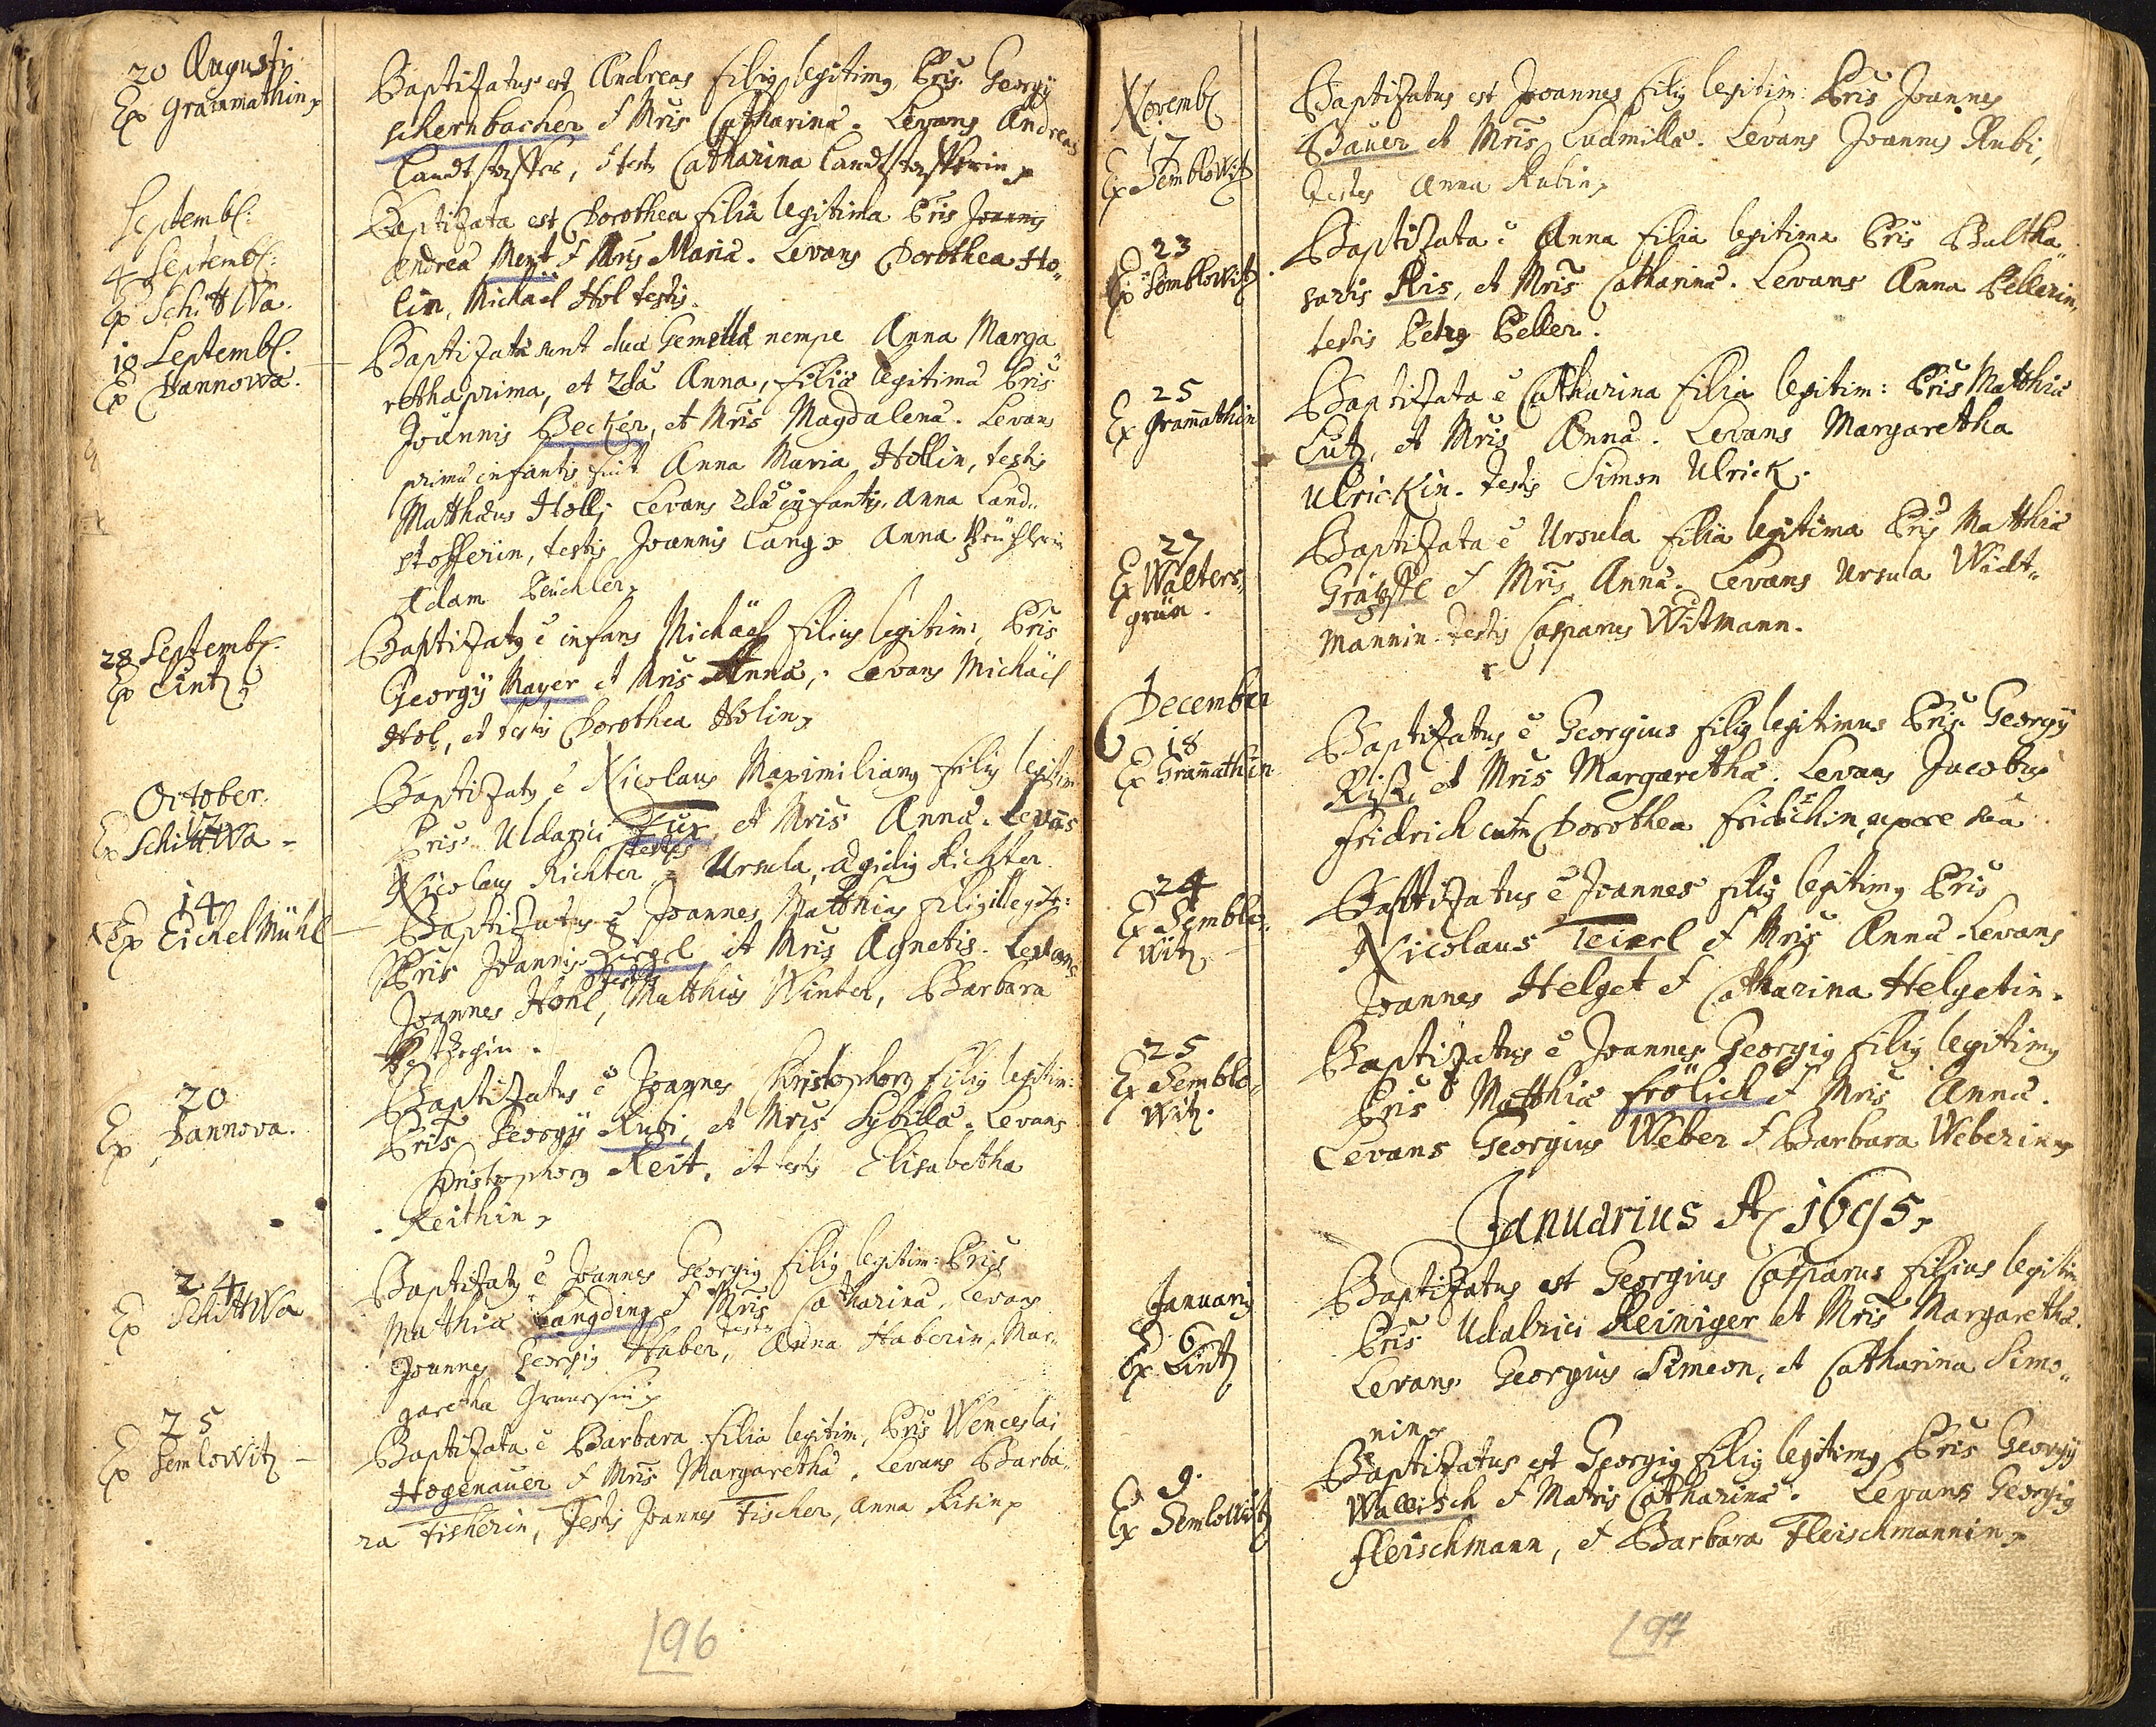 20 Augusti
Ex Grammathin
Baptizatus est Andreas filiꝯ legitimꝯ Pris Georgÿ
schernbacher et Mris Catharinæ. Levans Andreas
Landtstoffer, et testis Catharina Landtstofferin
Septemb:
4 Septemb:
Ex Schittwa.
Baptizata est Dorothea filia legitima Pris Joannis
Andreæ Mext et Mris Mariæ. Levans Dorothea Ho„
lin, Michael Hol testis.
18 Septemb.
Ex Hannowa.
Baptizatæ sunt duæ Gemellæ nempe Anna Marga„
retha prima, et 2da Anna, filiæ legitimæ Pris
Joannis Becker, et Mris Magdalenæ. Levans
primæ infantis fuit Anna Maria Hollin, testis
Matthæus Holl; Levans 2dæ infantis, Anna Land„
stofferin, testis Joannis Lang Anna
Adam Peuchler
28 Septemb.
Ex Lintz
Baptizatꝯ ē infans Michaël filius legitim: Pris
Georgÿ Mayer et Mris Annæ, Levans Michaël
Hol, et testis Dorothea Holin
October.
12
Ex Schittwa
Baptizatꝯ ē Nicolaus Maximilianꝯ filiꝯ legitim
Pris Uldarici Fux et Mris Annæ. Levans
Nicolaus Richter testes Ursula, Ægidiꝯ Richter
14
Ex Eichel Mühl
Baptizatus ē Joannes Matthias filiꝯ illegit:
Pris Joannis Ziegel, et Mris Agnetis. Levans
Joannes Hohl, testis Matthias Winter, Barbara
20
Ex Hannova.
Baptizatus ē Joannes Christophorꝯ filiꝯ legitim:
Pris Georgÿ Rubi, et Mris Sybillæ. Levans
Christophorꝯ Reit, et testis Elisabetha
Reithin
24
Ex Schittwa
Baptizatꝯ ē Joannes Georgiꝯ filiꝯ legitim: Pris
Mathiæ Langding et Mris Catharinæ, Levans
Joannes Georgiꝯ Haber, testes Anna Haberin, Mar„
garetha
25
Ex Semlowitz
Baptizata ē Barbara filia legitim, Pris Wenceslai
Hogenauer et Mris Margarethæ. Levans Barba„
ra Fisherin, Testis Joannes Fischer, Anna Risin
196
Novemb
17
Ex Semblowitz
Baptizatus est Joannes filiꝯ legitim: Pris Joannes
Bauer et Mris Ludmillæ. Levans Joannes Rubi,
Testes Anna Rubin
23
Ex Semblowitz
Baptizata ē Anna filia legitima Pris Baltha„
saris Ris, et Mris Catharinæ. Levans Anna Pellerin,
testis Petrꝯ Peller.
25
Ex Gram̄athin
Baptizata ē Catharina filia legitim: Pris Matthiæ
Lutz, et Mris Annæ. Levans Margaretha
Ulrickin. Testis Simon Ulrick.
27
Ex Walters„
grün.
Baptizata ē Ursula filia legitima Pris Matthiæ
et Mris Annæ. Levans Ursula Widt„
mannin. Testis Casparus Witmann.
December
18
Ex Gram̄athin
Baptizatus ē Georgius filiꝯ legitimus Pris Georgÿ
Riß, et Mris Margarethæ. Levans Jacobus
fridrich cum Dorothea fridrichin uxore sua
24
Ex Semblo„
witz
Baptizatus ē Joannes filiꝯ legitimꝯ Pris
Nicolaus Teierl et Mris Annæ Levans
Joannes Helget et Catharina Helgetin.
25
Ex Semblo„
witz.
Baptizatus ē Joannes Georgiꝯ filiꝯ legitimꝯ
Pris Matthiæ frölich et Mris Annæ.
Levans Georgius Weber et Barbara Weberin
Januarius A 1695
Januarÿ
6
Ex Lintz
Baptizatus est Georgius Casparus filius legitim
Pris Udalrici Reiniger et Mris Margarethæ.
Levans Georgius Simeon, et Catharina Simo„
nin
9.
Ex Semlowitz
Baptizatus est Georgiꝯ filiꝯ legitimꝯ Pris Georgÿ
Wallisch et Matris Catharinæ. Levans Georgiꝯ
fleischmann, et Barbara Fleischmannin
197